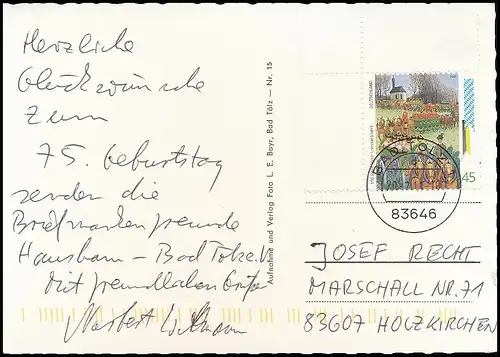 Herzliche
Glückwünsche
zum
75. Geburtstag
senden die
Briefmarkenfreunde
Hausham - Bad Tölz e.V.
Mit freundlichen Grüßen
Norbert
Aufnahme und Verlag Foto L. E. Bayr, Bad Tölz — Nr. 15
DEUTSCHLAND
45
BAD TÖLZ 1
83646
JOSEF RECHT
MARSCHALL NR. 71
83607 HOLZKIRCHEN